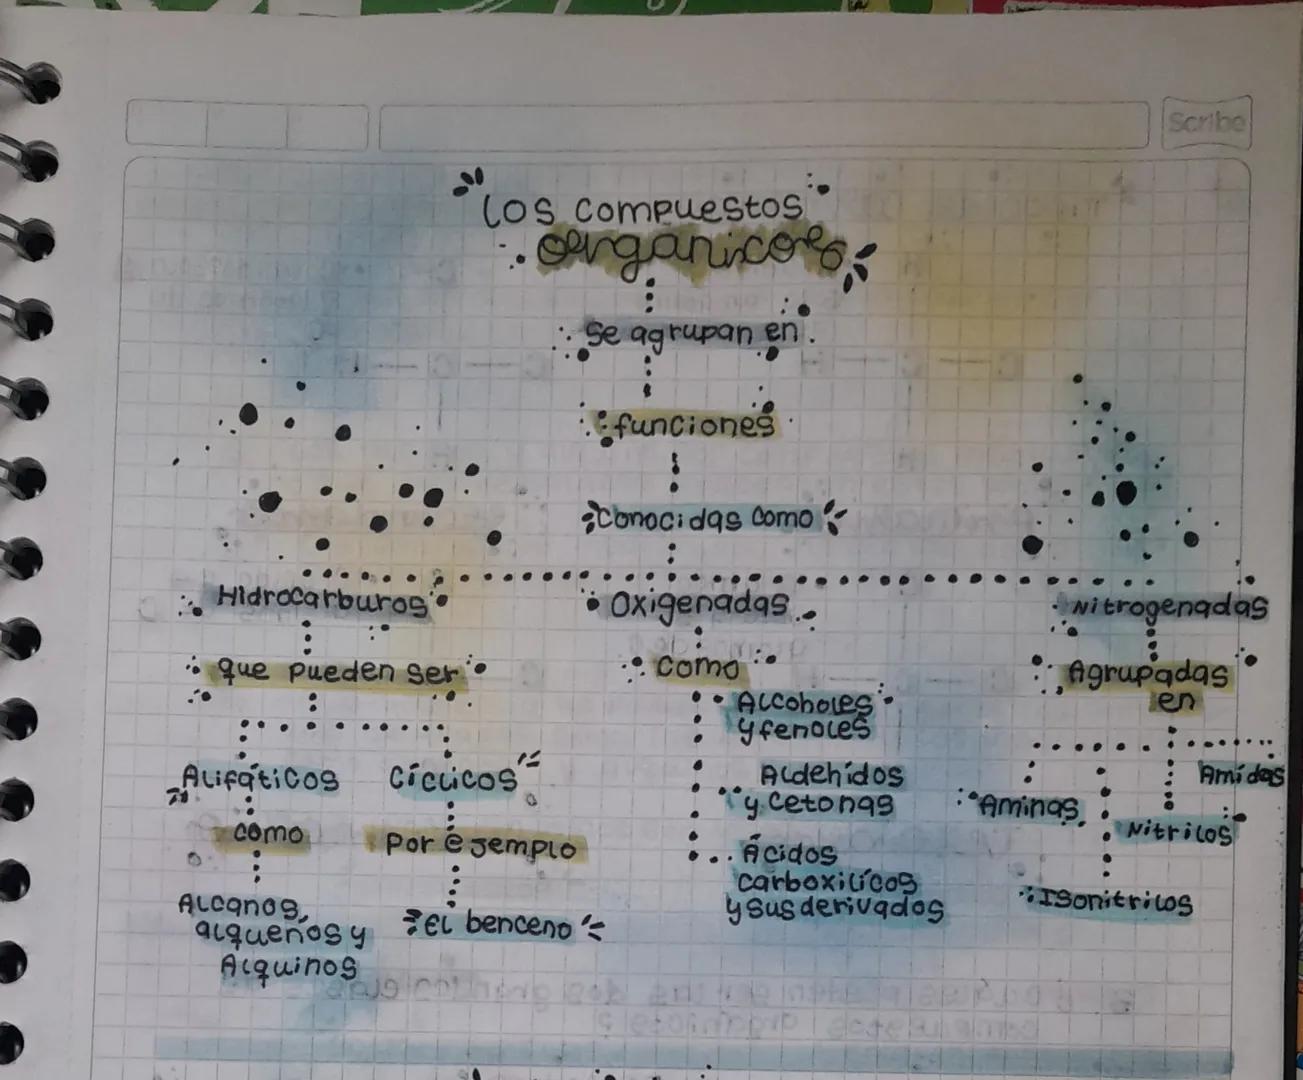 Scribe
Los compuestos
orgánicos
Se agrupan en
funciones
Conocidas como
Hidrocarburos
Oxigenadas
Nitrogenadas
que pueden ser
como
Agrupadas
en
Alcoholes
y fenoles
Alifáticos
Cíclicos
Aldehídos
y cetonas
Aminas
Nitrilos
Amidas
como
Por ejemplo
Ácidos
carboxilícos
y sus derivados
Isonitrilos
Alcanos,
alquenos y
Alquinos
El benceno